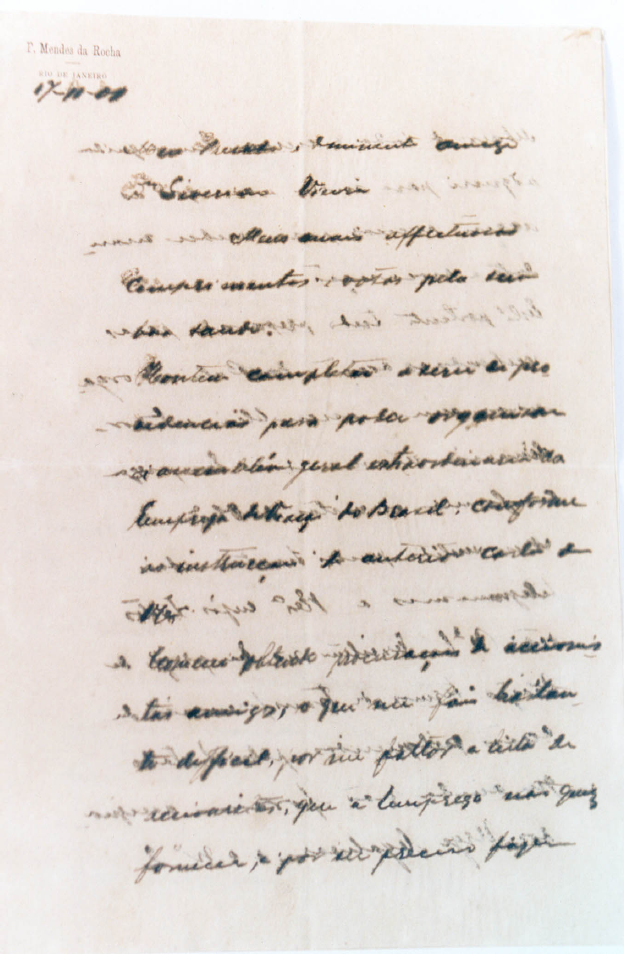 F. Mendes da Rocha
RIO DE JANEIRO
17-11-01
amigo
Vieira
Meus mais affectuosos
comprimentos e votos pela sua
boa saude.
Hontem completei a serie de pro
videncias para poder organizar
a assembléa geral extraordinaria da
Empreza de Viação do Brasil, conforme
as instrucções de anterior carta de
procurações de accionis
tas amigos, o que me foi bastan
te dificil, por me faltar a lista de
accionistas, que a Empreza não quiz
fornecer, e por ser preciso fazer